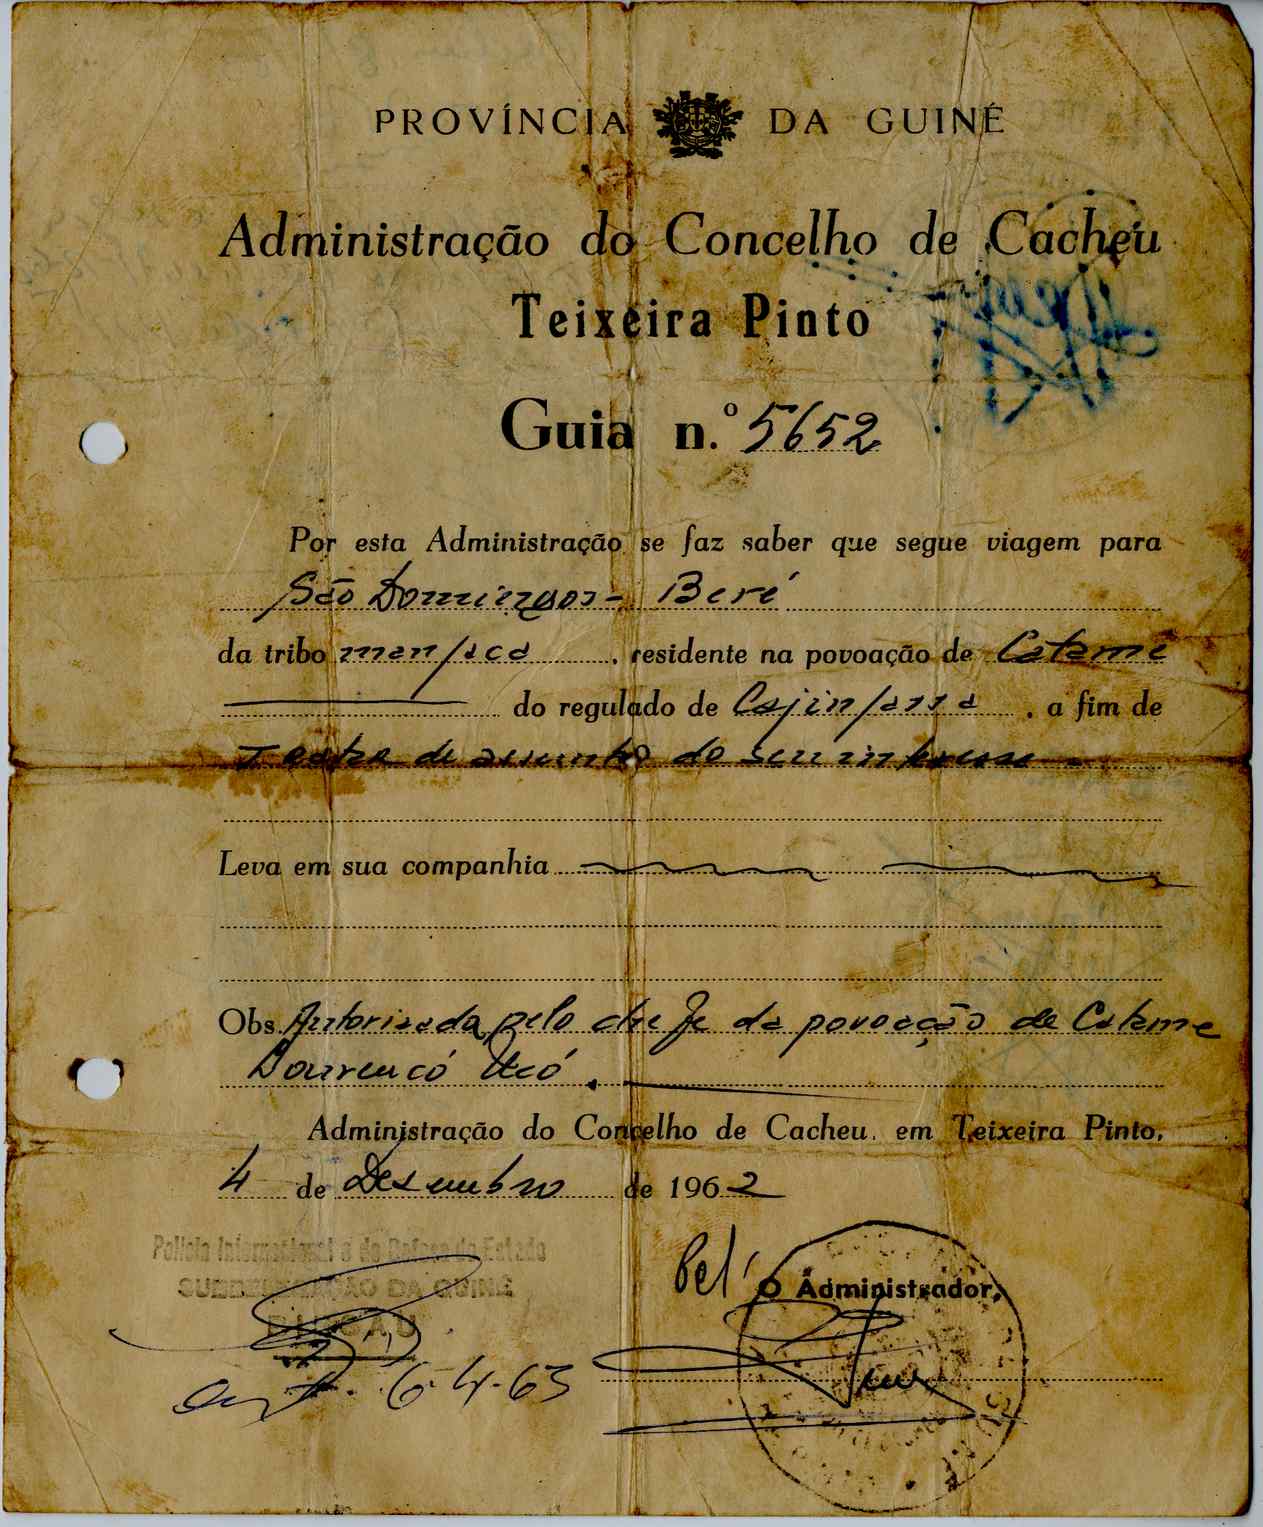 PROVÍNCIA DA GUINÉ
Administração do Concelho de Cacheu
Teixeira Pinto
Guia n.º 5652
Por esta Administração se faz saber que segue viagem para
São Domingos - Beré
da tribo manjaca, residente na povoação de Catame
do regulado de Cajinjassa, a fim de
Tratar de assunto do seu interesse -
Leva em sua companhia
Obs. Autorizada pelo chefe da povoação de Catame
Lourencó
Administração do Concelho de Cacheu, em Teixeira Pinto,
4 de Desembro de 1962
Policia Internacional e de Defesa do Estado
SUBDELEGAÇÃO DA GUINÉ
BISSAU
Pel' O Administrador,
6-4-63